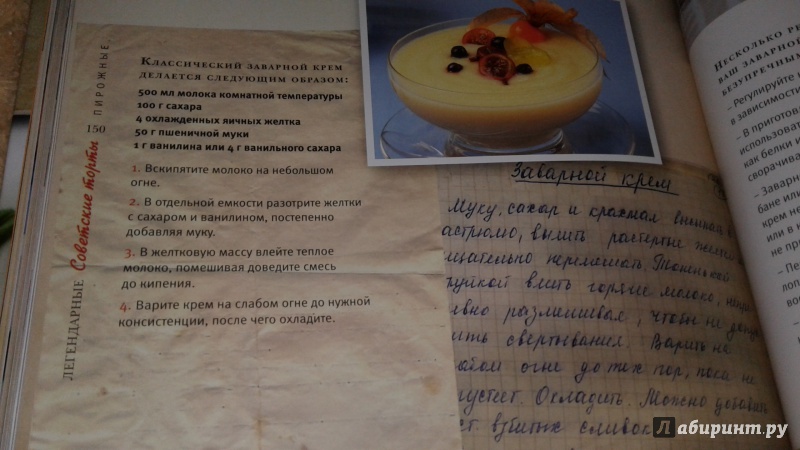 Классический заварной крем
делается следующим образом:
500 мл молока комнатной температуры
100 г сахара
4 охлажденных яичных желтка
50 г пшеничной муки
1 г ванилина или 4 г ванильного сахара
1. Вскипятите молоко на небольшом
огне.
2. В отдельной емкости разотрите желтки
с сахаром и ванилином, постепенно
добавляя муку.
3. В желтковую массу влейте теплое
молоко, помешивая доведите смесь
до кипения.
4. Варите крем на слабом огне до нужной
консистенции, после чего охладите.
ЛЕГЕНДАРНЫЕ Советские торты 150 ПИРОЖНЫЕ,
Заварной крем
Муку, сахар и крахмал
растертые
перемешать Тоненькой
влить горячее молоко,
чтобы не
свертывания. Варить на
огне до тех пор, пока не
Охладить. Можно добавить
взбитых сливок
Несколько
ваш заварной
безупречным
– Регулируйте
в зависимости
– В приготов
использовать
как белки и
сворачива
– Заварн
бане или
крем не
или в
не пр
– Пе
лоп
во
Лабиринт.ру